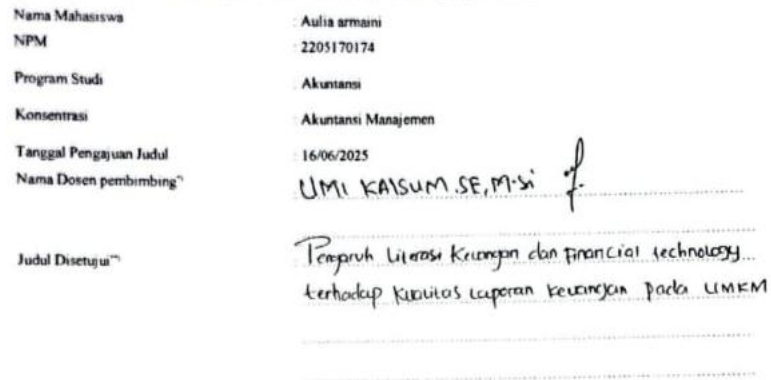 Nama Mahasiswa : Aulia armaini
NPM : 2205170174
Program Studi : Akuntansi
Konsentrasi : Akuntansi Manajemen
Tanggal Pengajuan Judul : 16/06/2025
Nama Dosen pembimbing*) UMI KALSUM.SE,M.Si
Judul Disetujui**) : Pengaruh Literasi Keuangan dan Financial technology
terhadap Kualitas Laporan keuangan pada UMKM